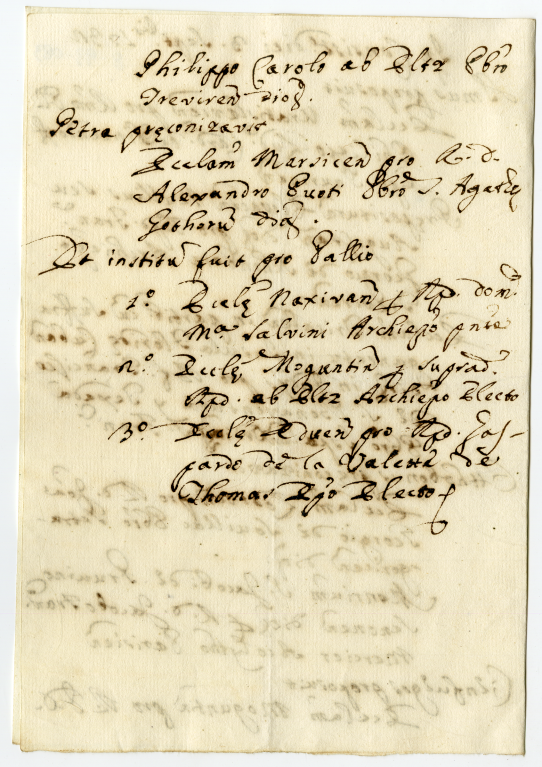 Philippo Carolo ab Eltz Pbro
Treviren dioc.
Petra pręconizavit
Ecclam Marsicen pro R. d.
Alexandro Puoti Pbro S. Agatę
Gothorū dioc.
Et institū fuit pro Pallio
1.º Ecclę Naxivan p Rp. dom.
Mª. Salvini Archiepo pnte
2.º Ecclę Moguntin p suprad.
Rpd. ab Eltz Archiepo Electo
3.º Ecclę Eduen pro Rpd. Gas-
pardo de la Valette de
Thomas Epo Electo